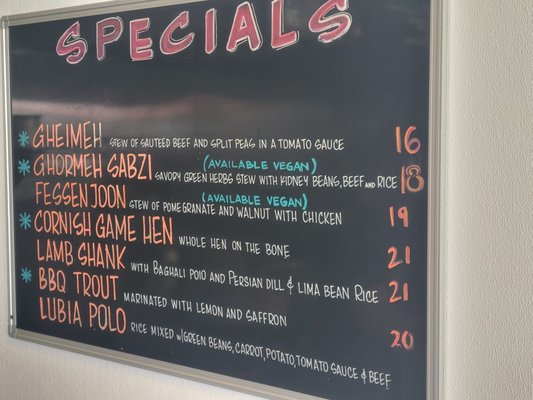 SPECIALS
* GHEIMEH STEW OF SAUTEED BEEF AND SPLIT PEAS IN A TOMATO SAUCE 16
(AVAILABLE VEGAN)
* GHORMEH SABZI SAVORY GREEN HERBS STEW WITH KIDNEY BEANS, BEEF AND RICE 18
(AVAILABLE VEGAN)
FESSENJOON STEW OF POMEGRANATE AND WALNUT WITH CHICKEN 19
* CORNISH GAME HEN WHOLE HEN ON THE BONE 21
LAMB SHANK WITH BAGHALI POLO AND PERSIAN DILL & LIMA BEAN RICE 21
* BBQ TROUT MARINATED WITH LEMON AND SAFFRON 20
LUBIA POLO RICE MIXED W/GREEN BEANS, CARROT, POTATO, TOMATO SAUCE & BEEF